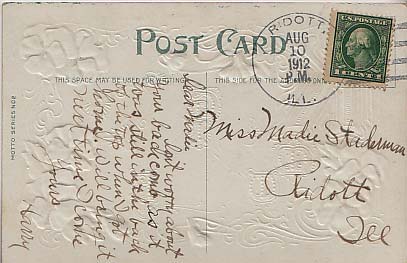 POST CARD
RIDOTT
AUG
10
1912
P.M.
ILL.
U.S. POSTAGE
THIS SPACE MAY BE USED FOR WRITING
THIS SIDE FOR THE ADDRESS ONLY
MOTTO SERIES NO 2
Dear Madie
Dont worry about
your back comb as it
was still in the back
of the top when I got
home. Will bring it
next time I come
Yours
Harry
Miss Madie
Ridott
Ill